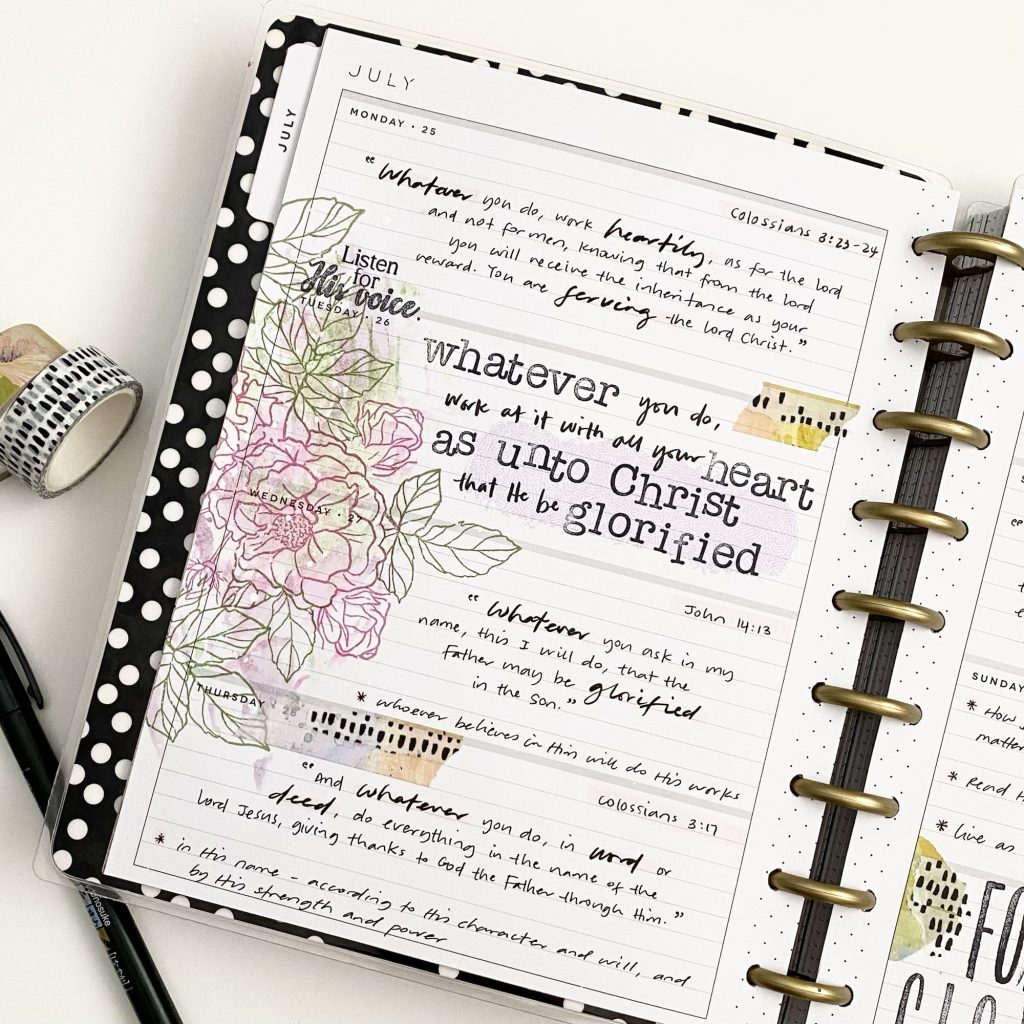 JULY
JULY
MONDAY • 25
Colossians 3:23-24
"Whatever you do, work heartily, as for the lord
and not for men, knowing that from the lord
you will receive the inheritance as your
reward. You are serving the lord Christ."
Listen
for
His voice.
TUESDAY • 26
whatever you do,
work at it with all your heart
as unto Christ
that He be glorified
WEDNESDAY • 27
John 14:13
"Whatever you ask in my
name, this I will do, that the
Father may be glorified
in the Son."
* whoever believes in Him will do His works
THURSDAY • 28
Colossians 3:17
"And whatever you do, in word or
deed, do everything in the name of the
Lord Jesus, giving thanks to God the Father through Him."
* in His name - according to His character and will, and
by His strength and power
SUNDAY
* How
* Read
* live as